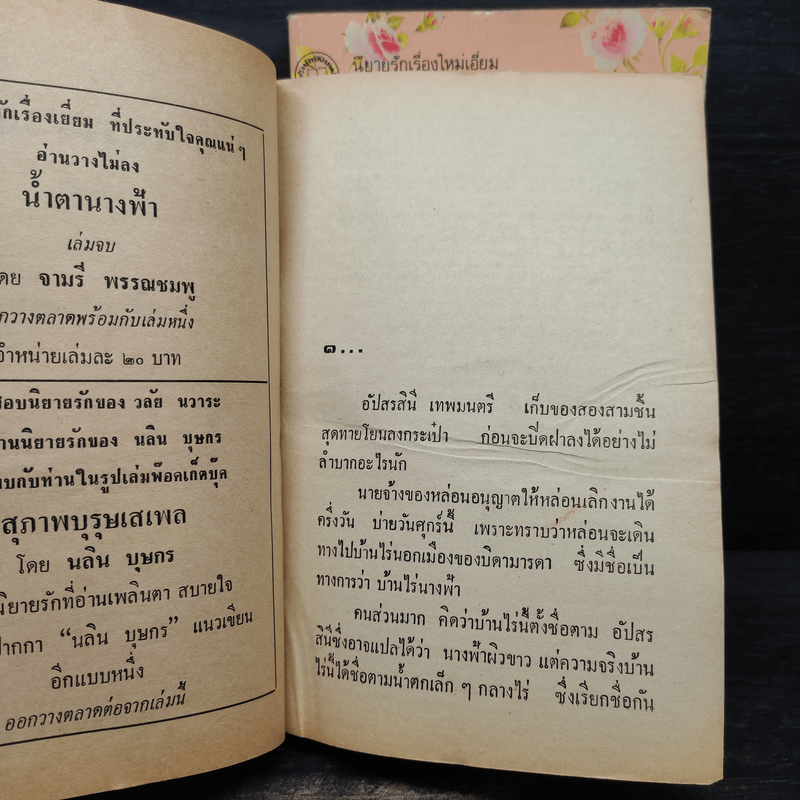 นิยายรักเรื่องใหม่เอี่ยม
รักเรื่องเยี่ยม ที่ประทับใจคุณแน่ ๆ
อ่านวางไม่ลง
น้ำตานางฟ้า
เล่มจบ
โดย จามรี พรรณชมพู
กวางตลาดพร้อมกับเล่มหนึ่ง
จำหน่ายเล่มละ ๒๐ บาท
ชอบนิยายรักของ วลัย นวาระ
านนิยายรักของ นลิน บุษกร
บกับท่านในรูปเล่มพ๊อคเก็ตบุ๊ค
สุภาพบุรุษเสเพล
โดย นลิน บุษกร
นิยายรักที่อ่านเพลินตา สบายใจ
ปากกา “นลิน บุษกร” แนวเขียน
อีกแบบหนึ่ง
ออกวางตลาดต่อจากเล่มนี้
๑...
อัปสรสินี เทพมนตรี เก็บของสองสามชิ้น
สุดท้ายโยนลงกระเป๋า ก่อนจะปิดฝาลงได้อย่างไม่
ลำบากอะไรนัก
นายจ้างของหล่อนอนุญาตให้หล่อนเลิกงานได้
ครึ่งวัน บ่ายวันศุกร์นี้ เพราะทราบว่าหล่อนจะเดิน
ทางไปบ้านไร่นอกเมืองของบิดามารดา ซึ่งมีชื่อเป็น
ทางการว่า บ้านไร่นางฟ้า
คนส่วนมาก คิดว่าบ้านไร่นี้ตั้งชื่อตาม อัปสร
สินีซึ่งอาจแปลได้ว่า นางฟ้าผิวขาว แต่ความจริงบ้าน
ไร่นี้ได้ชื่อตามน้ำตกเล็ก ๆ กลางไร่ ซึ่งเรียกชื่อกัน